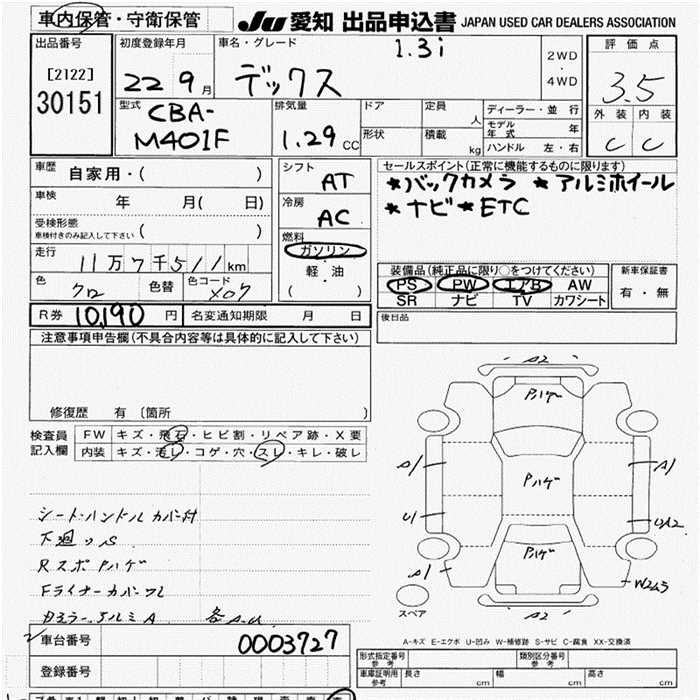 車内保管・守衛保管
JU 愛知 出品申込書 JAPAN USED CAR DEALERS ASSOCIATION
出品番号
[2122]
30151
初度登録年月
22 9月
車名・グレード
デックス
1.3i
2WD
・
4WD
評価点
3.5
外装 内装
C C
型式
CBA-
M401F
排気量
1.29 CC
ドア
形状
定員 人
積載 kg
ディーラー・並行
モデル年式 年
ハンドル 左・右
車歴 自家用・( )
車検 年 月( 日)
受検形態
車検付きのみ記入して下さい ( )
走行 11万7千511km
色 クロ 色替 色コード X07
シフト AT
冷房 AC
燃料
ガソリン
軽・油
( )
セールスポイント(正常に機能するものに限ります)
★バックカメラ ★アルミホイール
★ナビ★ETC
装備品(純正品に限り○をつけてください)
PS PW エアB AW
SR ナビ TV カワシート
新車保証書
有・無
R券 10,190 円 名変通知期限 月 日
後日品
注意事項申告欄(不具合内容等は具体的に記入して下さい)
修復歴 有 〔箇所 〕
検査員記入欄
FW キズ・飛石・ヒビ割・リペア跡・X要
内装 キズ・汚レ・コゲ・穴・スレ・キレ・破レ
シート・ハンドル カバー付
下廻りS
Rスポ Pハゲ
Fライナーカバーワレ
アルミA 各A.U
A2
Pハゲ
A1
A1
Pハゲ
U1
UA2
Pハゲ
A1
W2ムラ
A2
スペア
A-キズ E-エクボ U-凹み W-補修跡 S-サビ C-腐食 XX-交換済
車台番号 0003727
登録番号
形式指定番号 参考
類別区分番号 参考
車庫証明用 参考 長さ cm 幅 cm 高さ cm